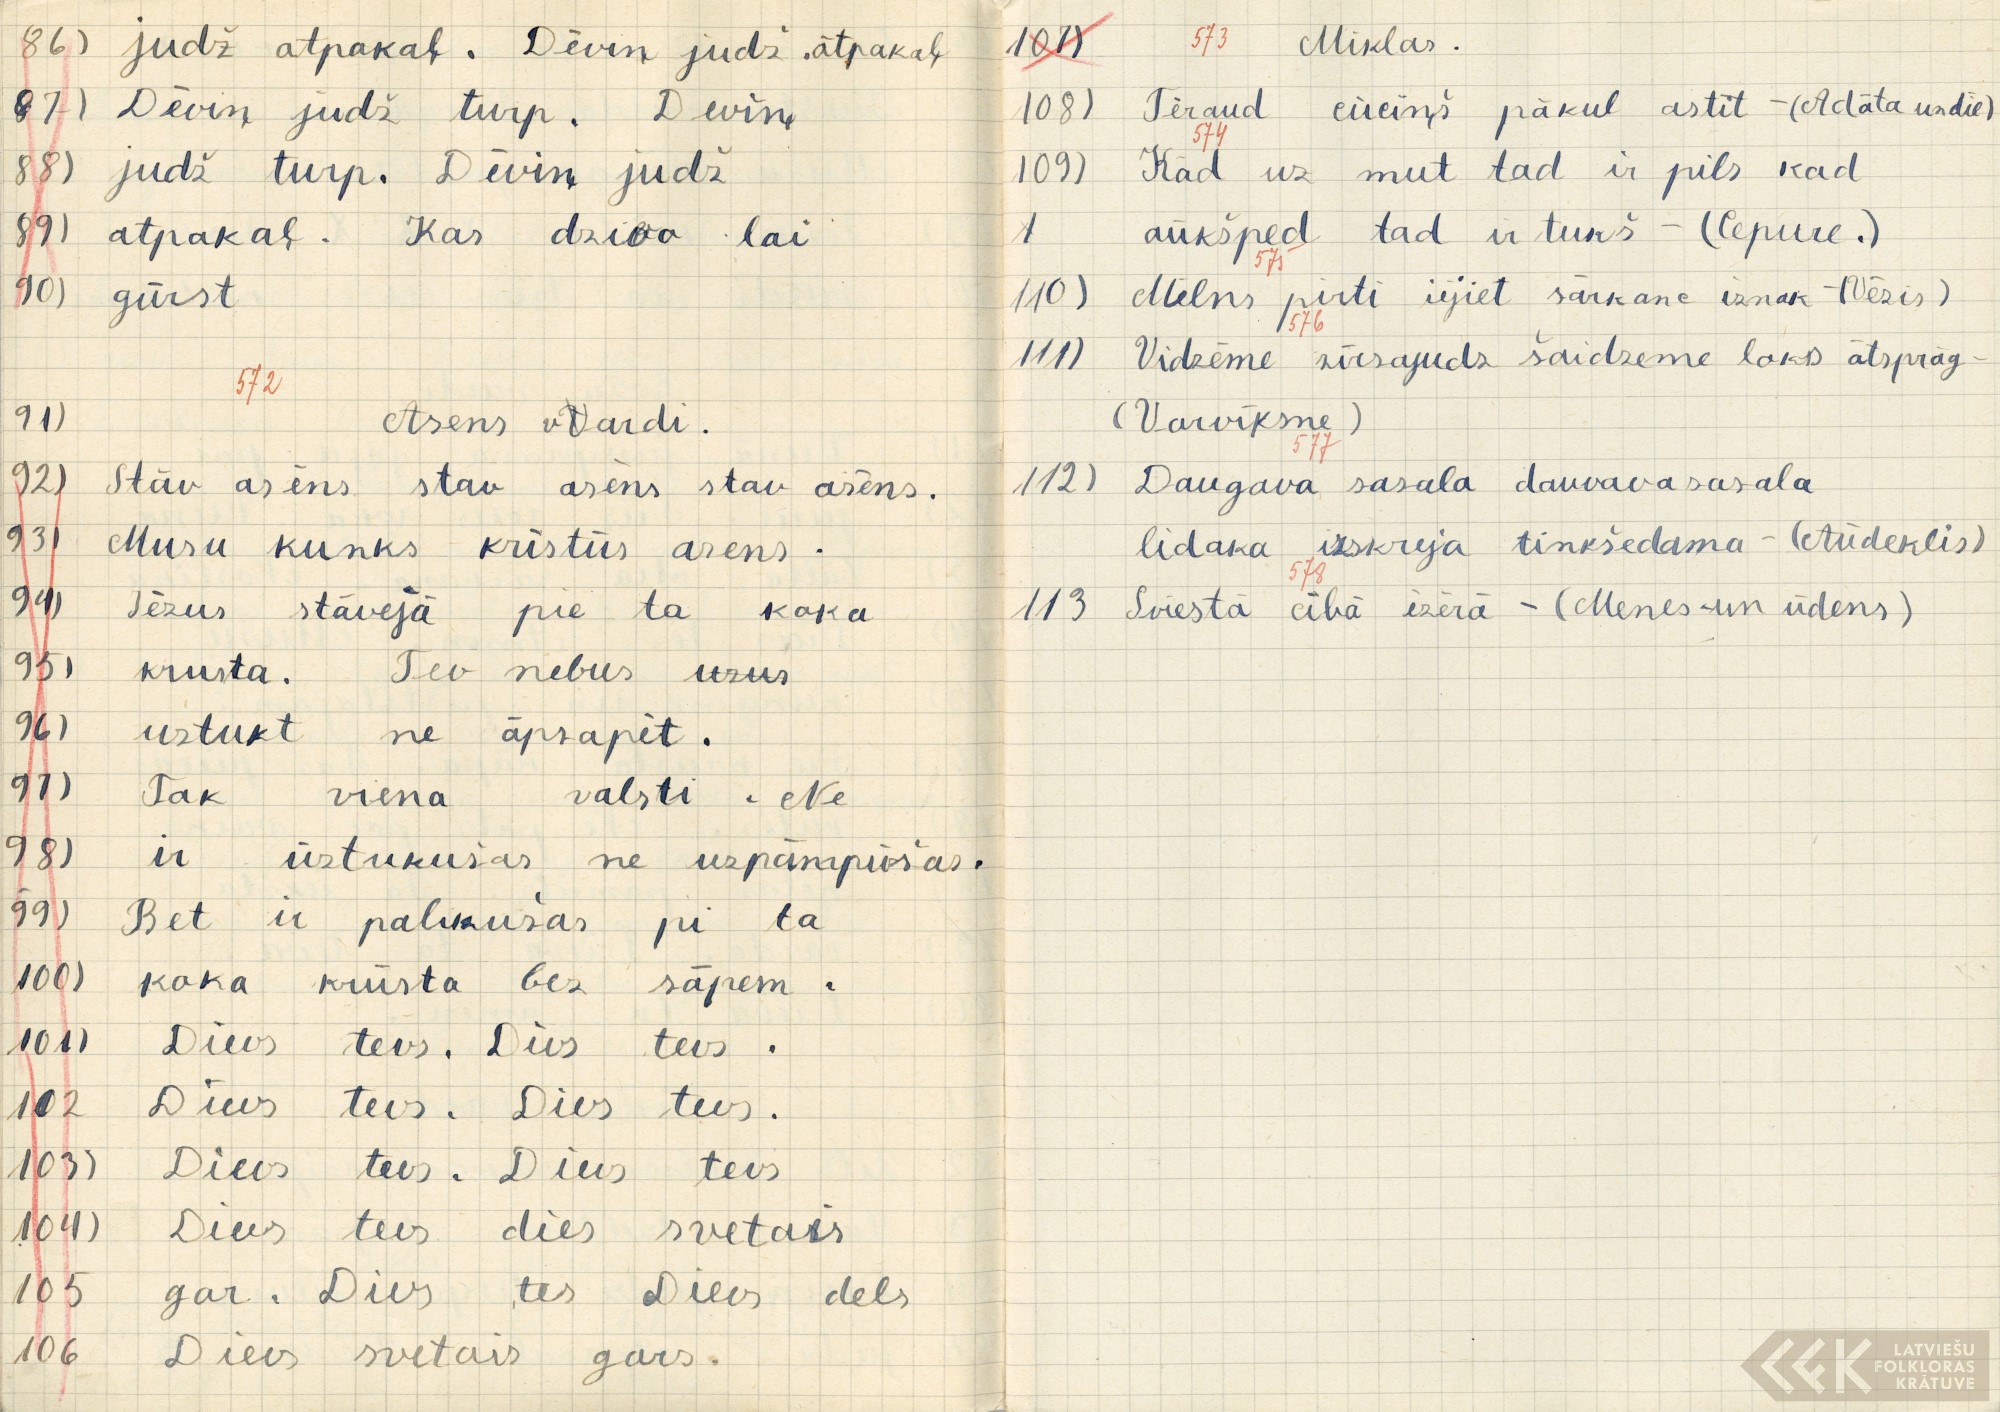 86) judž atpakaļ. Dēviņ judž. ātpakaļ
87) Dēviņ judž turp. Deviņ
88) judž turp. Dēviņ judž
89) atpakaļ. Kas dzivo lai
90) gūrst
572
91) Asens vVardi.
92) Stāv asēns stav asēns stav āsēns.
93) Musu kunks kristūs asens.
94) Jēzus stāvejā pie ta koka
95) krusta. Tev nebus uzus
96) uztukt ne āpsapēt.
97) Tak viena valsti. Ne
98) ir ūztukušas ne uzpāmpūšas.
99) Bet ir palikušas pi ta
100) koka krūsta bez sāpem.
101) Dievs tevs. Divs tevs.
102 Dievs tevs. Dies tevs.
103) Dievs tevs. Dievs tevs
104) Dievs tevs dies svetais
105 gar. Divs tes Dievs dels
106 Dievs svetais gars.
107) 573 Miklas.
108) Tēraud cūciņš pākul astīt - (Adāta undie)
574
109) Kād uz mut tad ir pils kad
1 aūkšpēd tad ir tukš - (Cepure.)
575
110) Mēlns pirti iējiet sārkane iznak - (Vēzis)
576
111) Vidzēme zirsajudz šaidzeme loks ātsprāg-
(Varvīksne)
577
112) Daugava sasala dauvava sasala
lidaka izskreja tinkšedama - (Aūdeklis)
578
113 Sviestā cibā izērā - (Menes-un ūdens)
LATVIEŠU
FOLKLORAS
KRĀTUVE